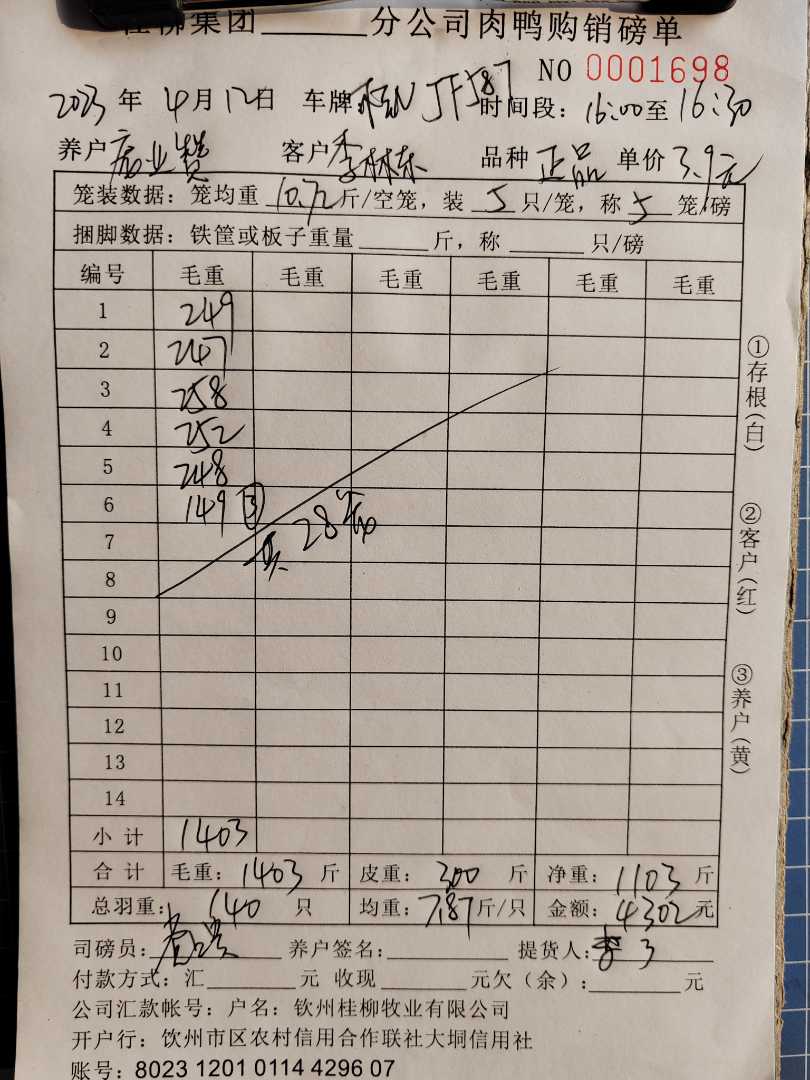 桂柳集团______分公司肉鸭购销磅单
NO 0001698
2023年 4月12日 车牌 桂N JF587 时间段：16:00至16:30
养户 业赞 客户 李林东 品种 正品 单价 3.9元
笼装数据：笼均重 10.72 斤/空笼，装 5 只/笼，称 5 笼/磅
捆脚数据：铁筐或板子重量______斤，称______只/磅
编号 毛重 毛重 毛重 毛重 毛重 毛重
1 249
2 247
3 258
4 252
5 248
6 149 ③
7 共28笼
8
9
10
11
12
13
14
小计 1403
合计 毛重：1403 斤 皮重：300 斤 净重：1103 斤
总羽重：140 只 均重：7.87斤/只 金额：4302元
司磅员：______ 养户签名：______ 提货人：李
付款方式：汇______元 收现______元欠（余）：______元
公司汇款帐号：户名：钦州桂柳牧业有限公司
开户行：钦州市区农村信用合作联社大垌信用社
账号：8023 1201 0114 4296 07
①存根（白）
②客户（红）
③养户（黄）